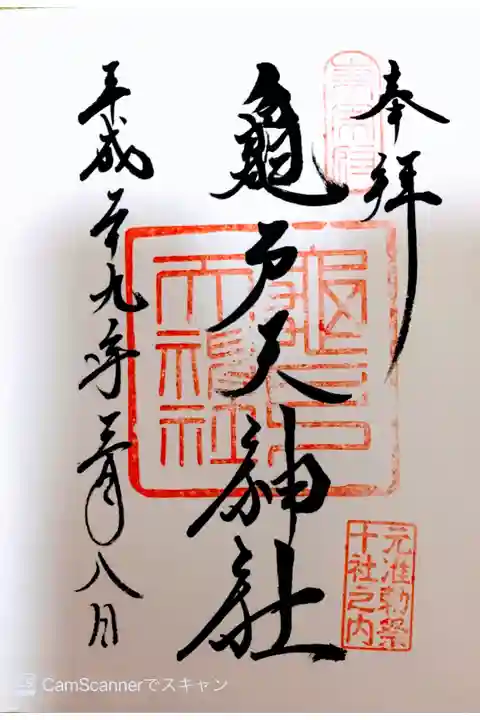 奉拝
龜戸天神社
平成廿九年三月八日
龜戸
天神社
元准勅祭
十社之内
CamScannerでスキャン